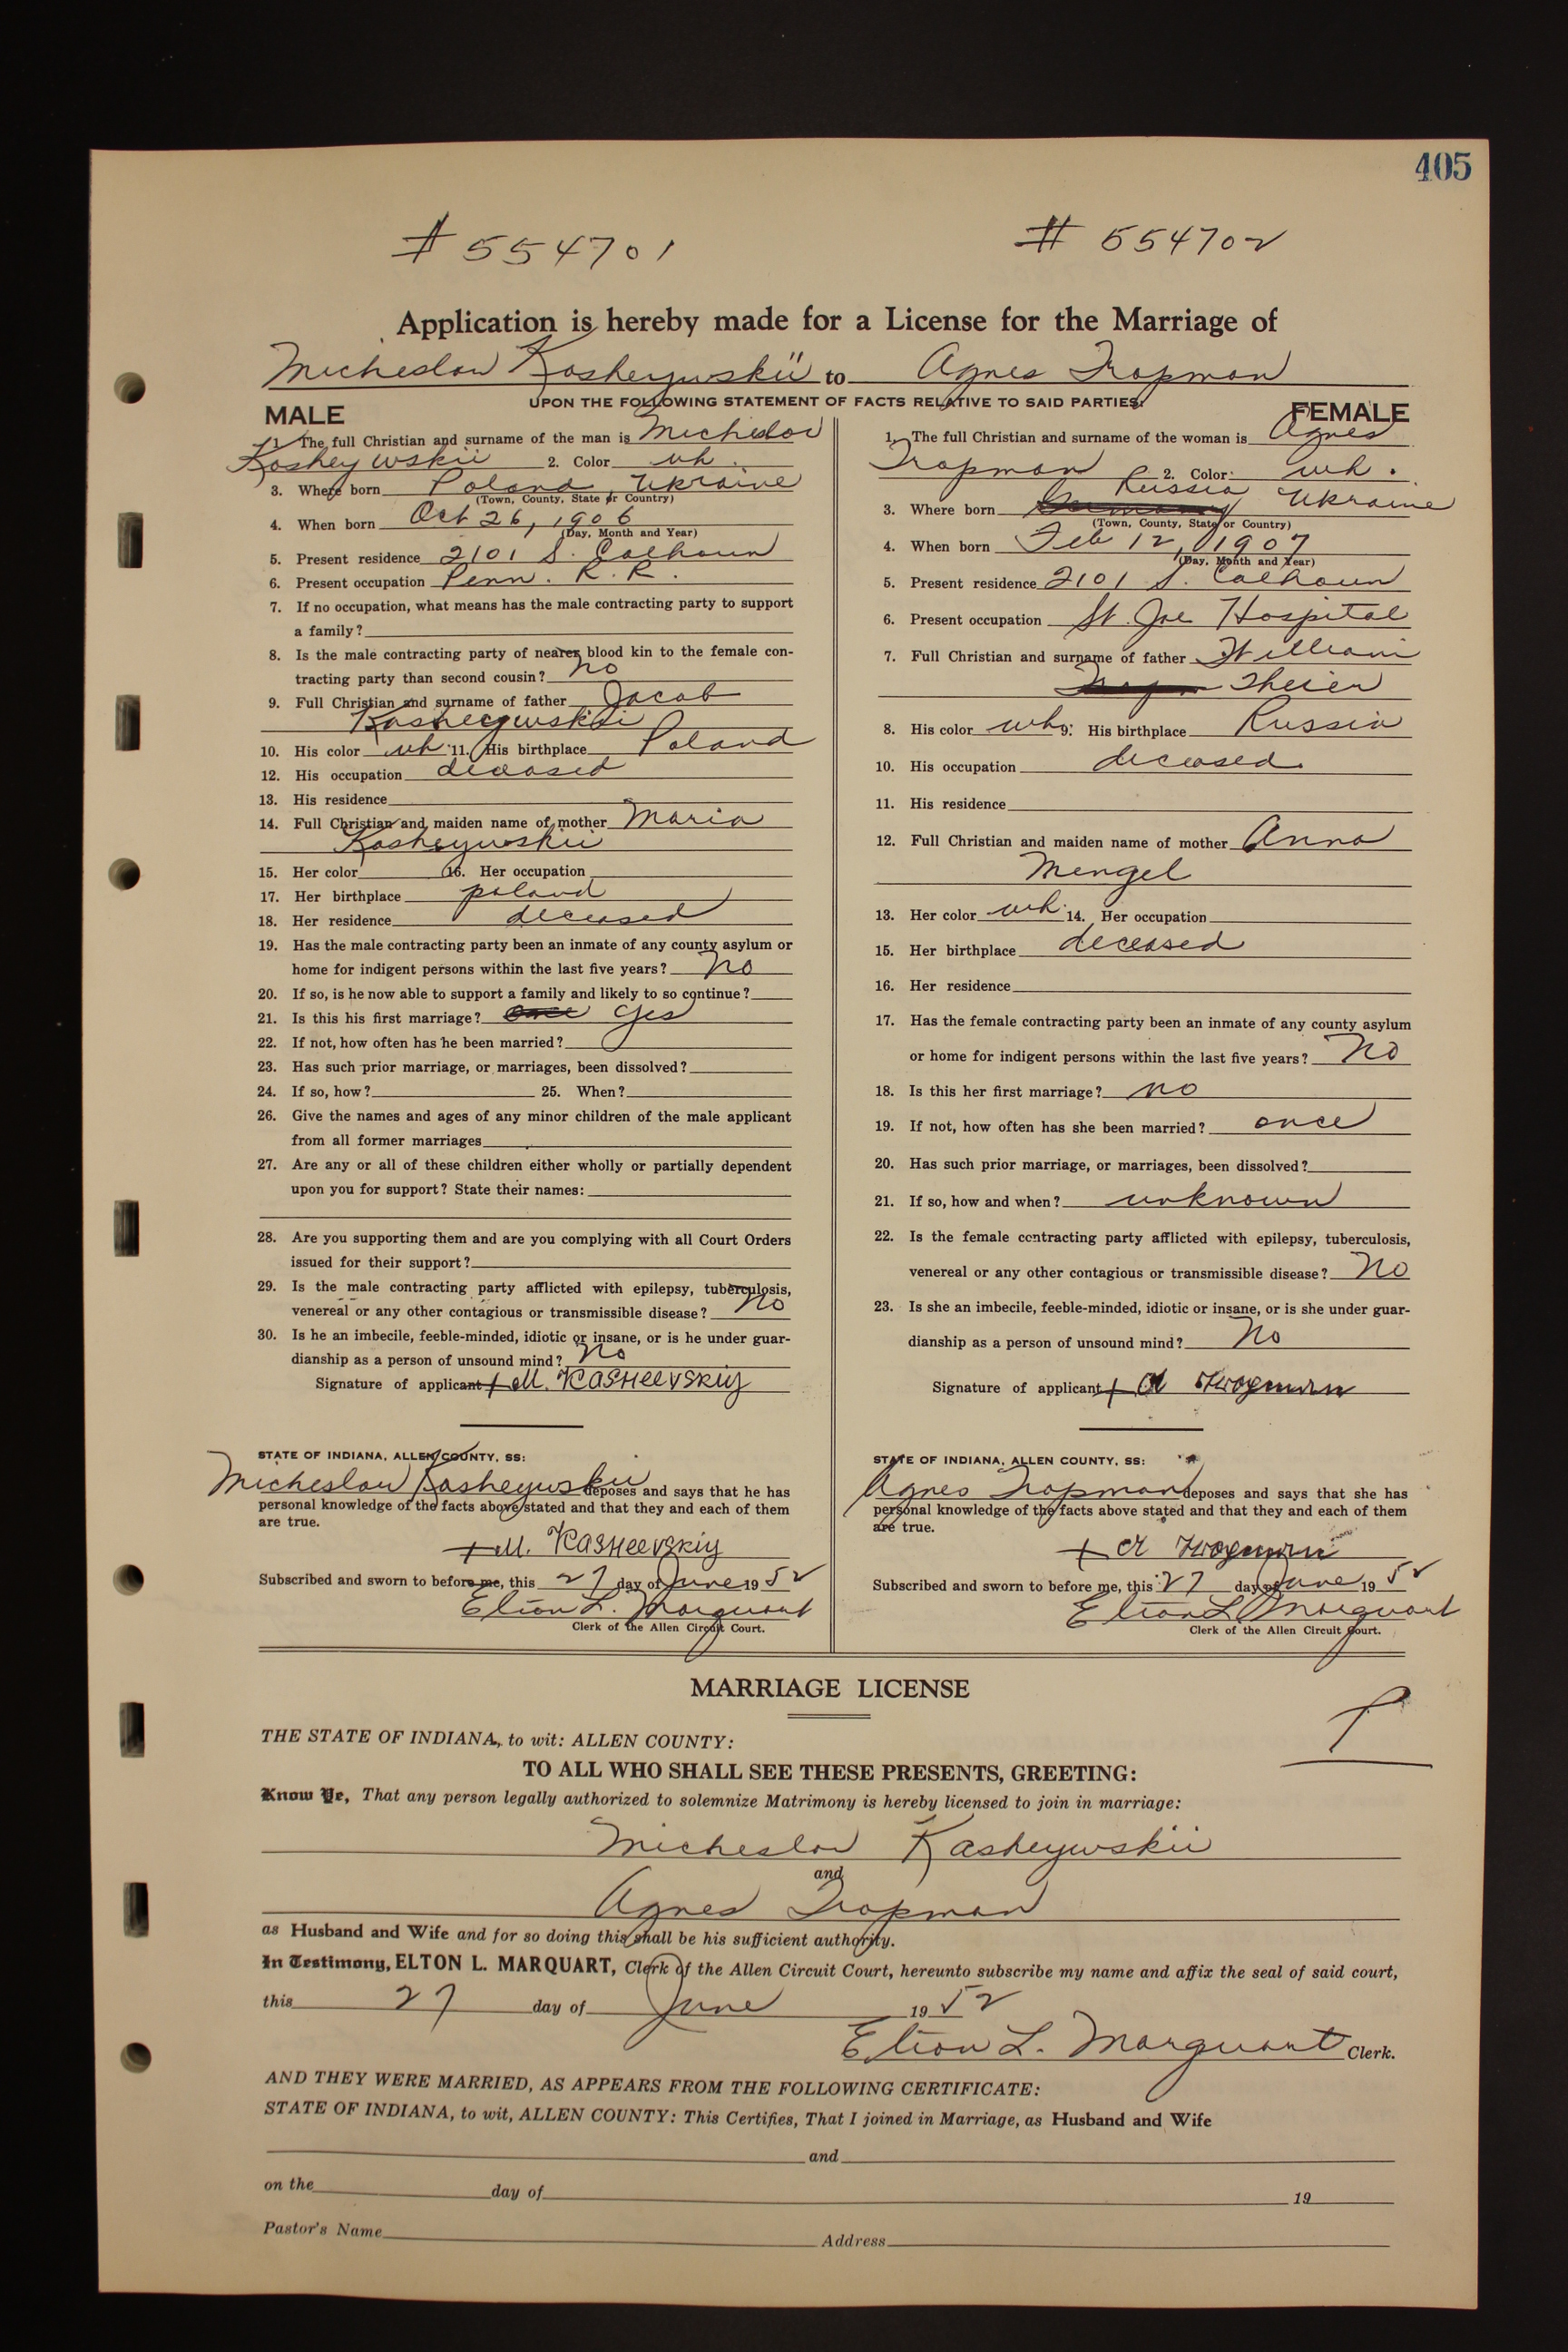 405
# 554701 # 554702
Application is hereby made for a License for the Marriage of
Micheslow Kosheywskii to Agnes Tropman
UPON THE FOLLOWING STATEMENT OF FACTS RELATIVE TO SAID PARTIES:
MALE
1. The full Christian and surname of the man is Micheslov
Kosheywskii 2. Color wh.
3. Where born Poland, Ukraine
(Town, County, State or Country)
4. When born Oct 26, 1906
(Day, Month and Year)
5. Present residence 2101 S. Calhoun
6. Present occupation Penn. R. R.
7. If no occupation, what means has the male contracting party to support
a family?
8. Is the male contracting party of nearer blood kin to the female con-
tracting party than second cousin? no
9. Full Christian and surname of father Jacob
Kosheeywskii
10. His color wh 11. His birthplace Poland
12. His occupation deceased
13. His residence
14. Full Christian and maiden name of mother Maria
Kosheywskii
15. Her color 16. Her occupation
17. Her birthplace poland
18. Her residence deceased
19. Has the male contracting party been an inmate of any county asylum or
home for indigent persons within the last five years? no
20. If so, is he now able to support a family and likely to so continue?
21. Is this his first marriage? once yes
22. If not, how often has he been married?
23. Has such prior marriage, or marriages, been dissolved?
24. If so, how? 25. When?
26. Give the names and ages of any minor children of the male applicant
from all former marriages
27. Are any or all of these children either wholly or partially dependent
upon you for support? State their names:
28. Are you supporting them and are you complying with all Court Orders
issued for their support?
29. Is the male contracting party afflicted with epilepsy, tuberculosis,
venereal or any other contagious or transmissible disease? no
30. Is he an imbecile, feeble-minded, idiotic or insane, or is he under guar-
dianship as a person of unsound mind? no
Signature of applicant + M. KASHeevskiy
STATE OF INDIANA, ALLEN COUNTY, SS:
Micheslow Kosheywskii deposes and says that he has
personal knowledge of the facts above stated and that they and each of them
are true.
+ M. KASHeevskiy
Subscribed and sworn to before me, this 27 day of June 1952
Elton L. Marquart
Clerk of the Allen Circuit Court.
FEMALE
1. The full Christian and surname of the woman is Agnes
Tropman 2. Color wh.
Russia
3. Where born Germany Ukraine
(Town, County, State or Country)
4. When born Feb 12, 1907
(Day, Month and Year)
5. Present residence 2101 S. Calhoun
6. Present occupation St. Joe Hospital
7. Full Christian and surname of father William
Theien
8. His color wh 9. His birthplace Russia
10. His occupation deceased
11. His residence
12. Full Christian and maiden name of mother Anna
Mengel
13. Her color wh. 14. Her occupation
15. Her birthplace deceased
16. Her residence
17. Has the female contracting party been an inmate of any county asylum
or home for indigent persons within the last five years? no
18. Is this her first marriage? no
19. If not, how often has she been married? once
20. Has such prior marriage, or marriages, been dissolved?
21. If so, how and when? unknown
22. Is the female contracting party afflicted with epilepsy, tuberculosis,
venereal or any other contagious or transmissible disease? no
23. Is she an imbecile, feeble-minded, idiotic or insane, or is she under guar-
dianship as a person of unsound mind? no
Signature of applicant + A
STATE OF INDIANA, ALLEN COUNTY, SS:
Agnes Tropman deposes and says that she has
personal knowledge of the facts above stated and that they and each of them
are true.
+ A
Subscribed and sworn to before me, this 27 day of June 1952
Elton L Marquart
Clerk of the Allen Circuit Court.
MARRIAGE LICENSE
THE STATE OF INDIANA, to wit: ALLEN COUNTY:
TO ALL WHO SHALL SEE THESE PRESENTS, GREETING:
Know Ye, That any person legally authorized to solemnize Matrimony is hereby licensed to join in marriage:
Micheslov Kasheywskii
and
Agnes Tropman
as Husband and Wife and for so doing this shall be his sufficient authority.
In Testimony, ELTON L. MARQUART, Clerk of the Allen Circuit Court, hereunto subscribe my name and affix the seal of said court,
this 27 day of June 1952
Elton L. Marquart Clerk.
AND THEY WERE MARRIED, AS APPEARS FROM THE FOLLOWING CERTIFICATE:
STATE OF INDIANA, to wit, ALLEN COUNTY: This Certifies, That I joined in Marriage, as Husband and Wife
and
on the day of 19
Pastor's Name Address